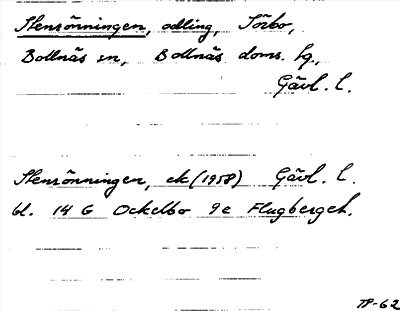 Stensönningen, odling, Sörbo,
Bollnäs sn, Bollnäs doms. lg.,
Gävl. l.
Stensönningen, ek (1958) Gävl. l.
bl. 14 G Ockelbo 9e Flugberget.
TP-62